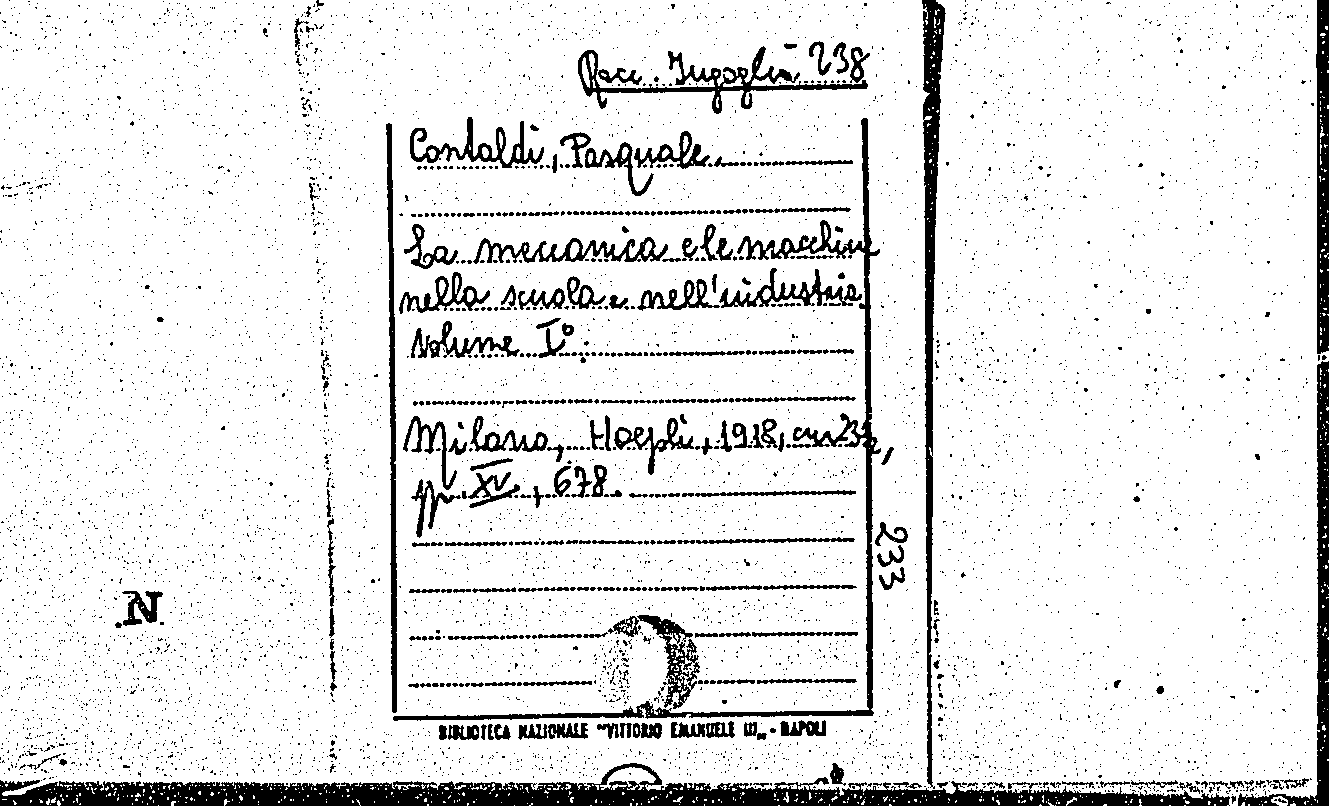 Racc. Jugoglia 238
Contaldi, Pasquale.
La meccanica e le macchine
nella scuola e nell'industria
Volume I°.
Milano, Hoepli, 1918, cm 23½,
pp. XV, 678.
233
N
BIBLIOTECA NAZIONALE "VITTORIO EMANUELE III„ - NAPOLI